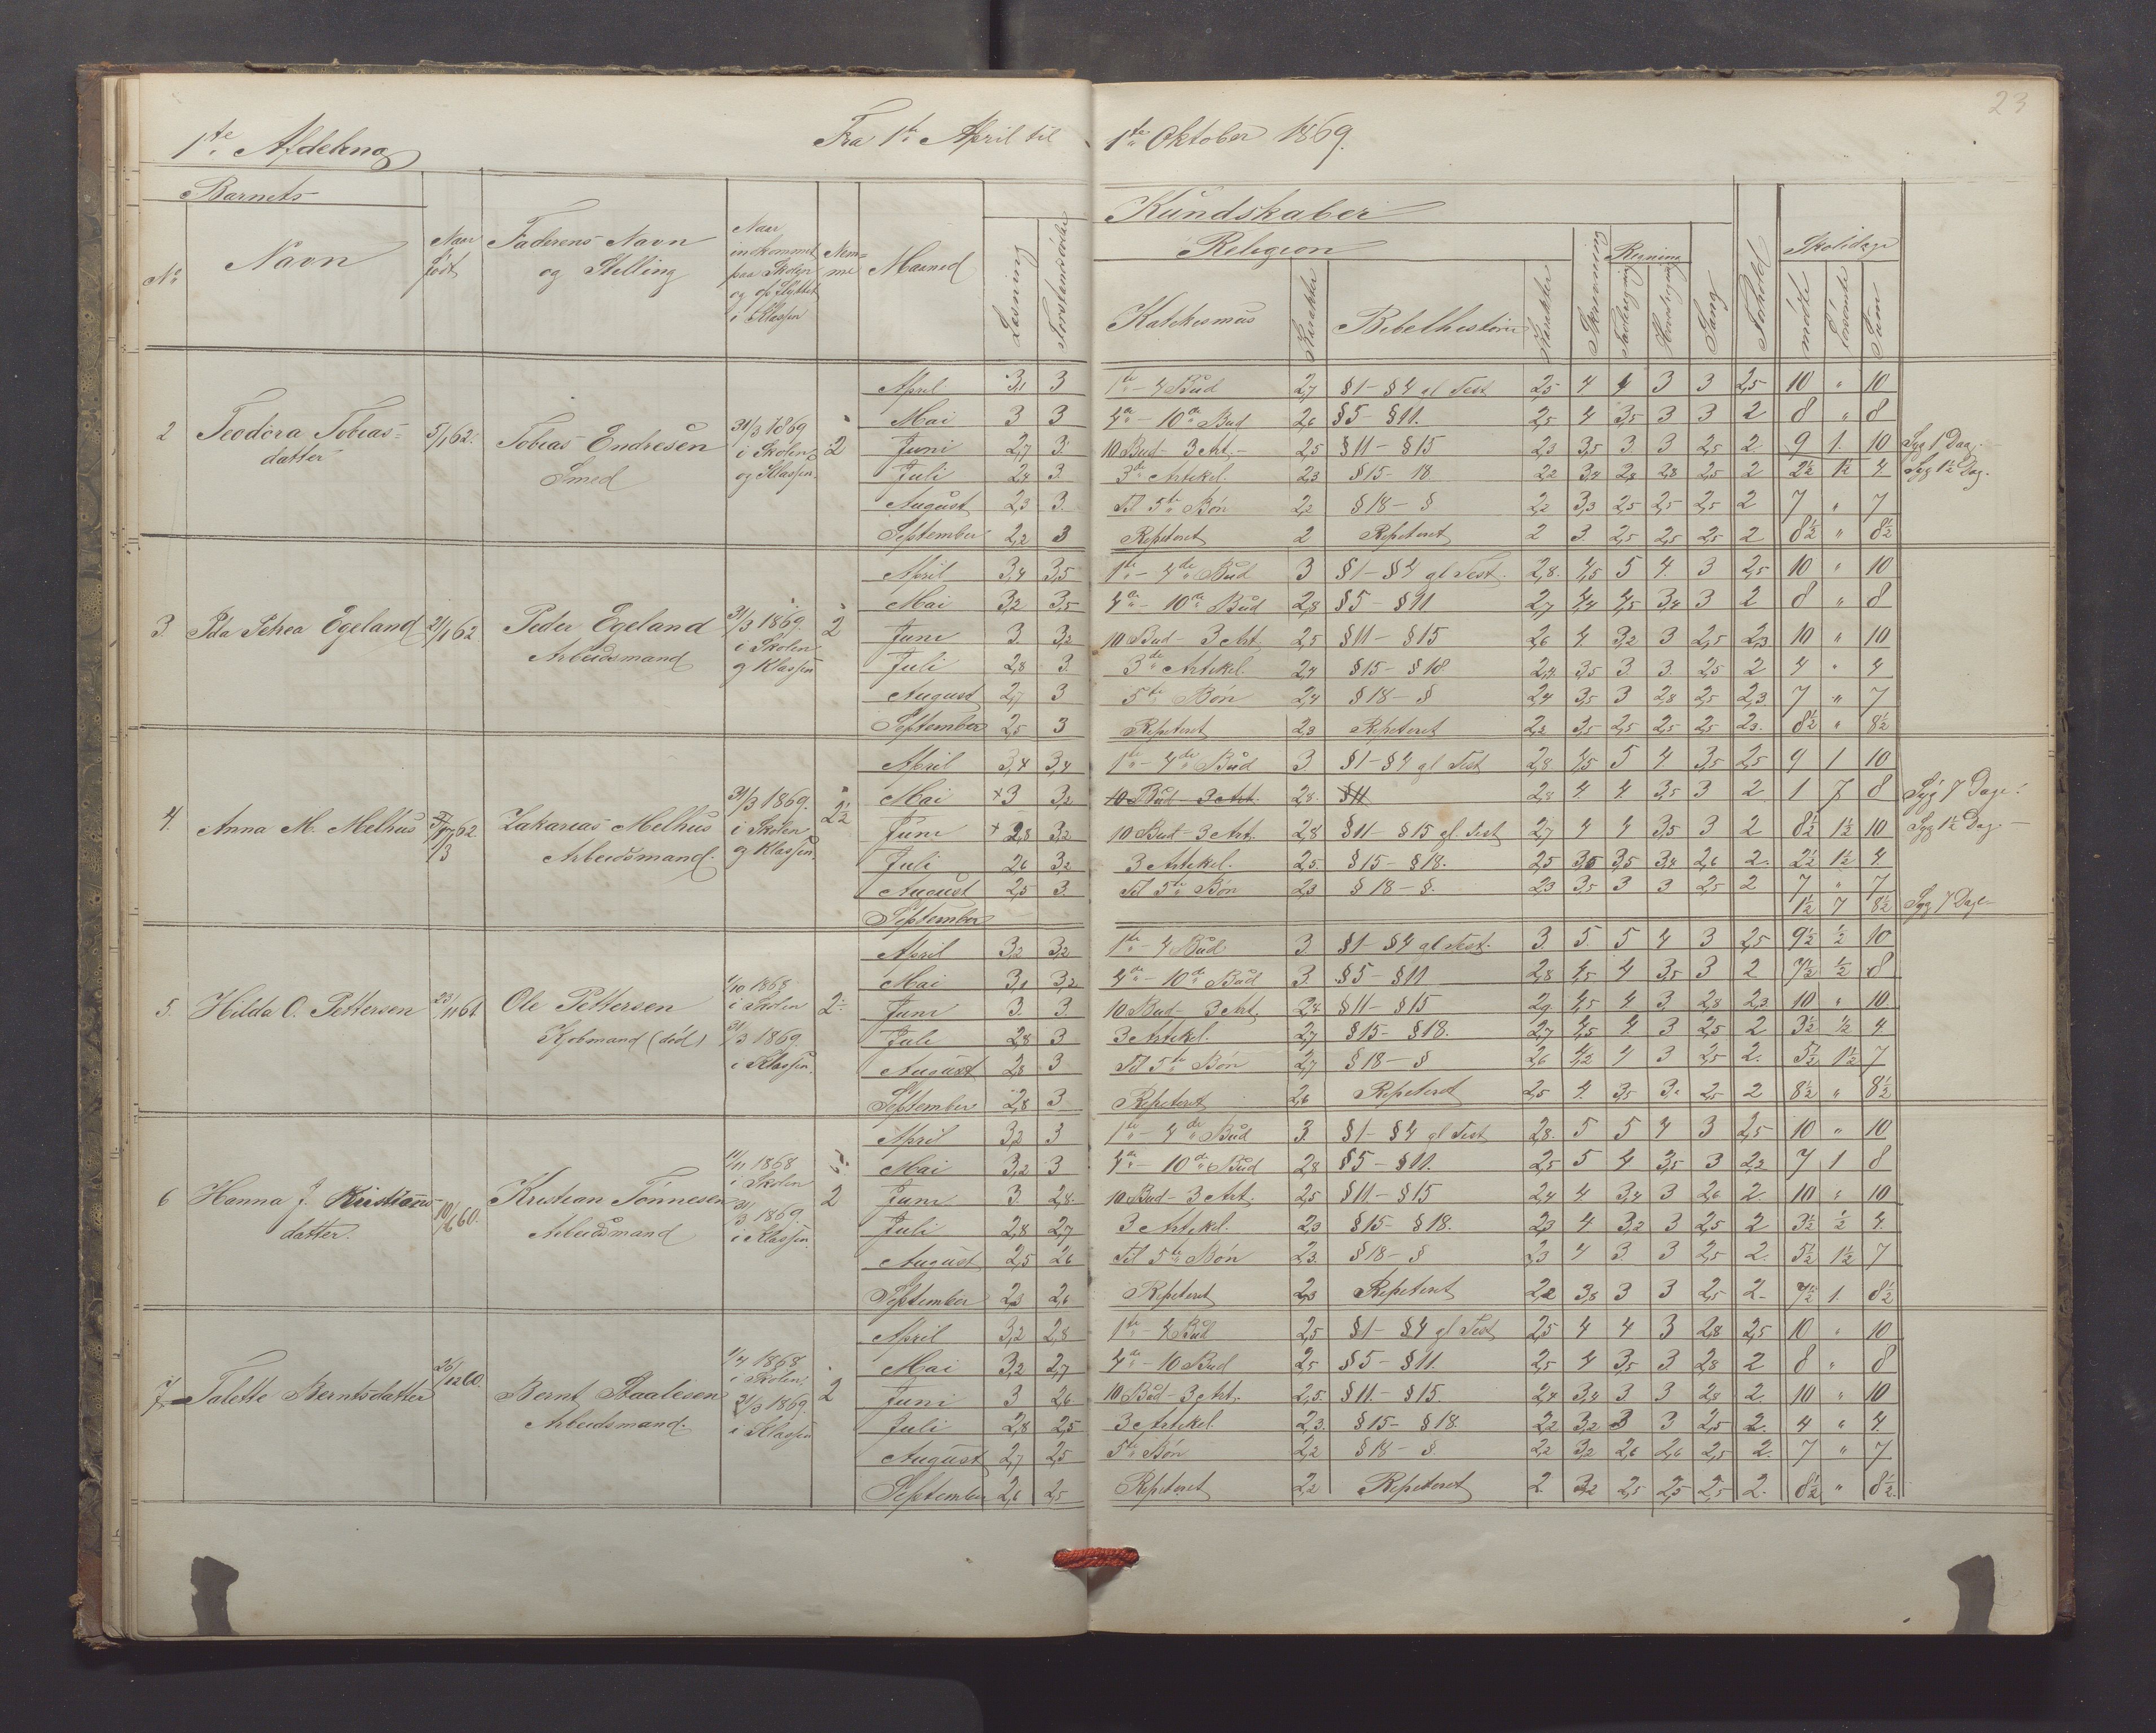 23
1ste Afdeling Fra 1ste April til 1ste Oktober 1869.
Barnets Kundskaber
No Navn Naar født Faderens Navn og Stilling Naar indkommet paa Skolen og opflyttet i Klassen Nemme Maaned Læsning Forstandsøvelse Religion Katekismus Karakter Bibelhistorie Karakter Skrivning Regning Tavleregning Hovedregning Sang Forhold Skoledage mødte forsømte Sum
2 Teodora Tobiasdatter 5/1 62. Tobias Endresen Smed 31/3 1869 i Skolen og Klassen. 2
April 3,1 3 1ste - 4 Bud 2,7 §1 - §4 gl Test 2,5 4 4 3 3 2,5 10 " 10
Mai 3 3 4de - 10de Bud 2,6 §5 - §11. 2,5 4 3,5 3 3 2 8 " 8
Juni 2,7 3. 10 Bud - 3 Art. - 2,5 §11 - §15 2,3 3,5 3 3 2,5 2. 9 1. 10 Syg 1 Dag.
Juli 2,4 3. 3die Artikel. 2,3 §15 - 18. 2,2 3,4 2,8 2,8 2,5 2 2½ 1½ 4 Syg 1½ Dag.
August 2,3 3. Til 5te Bøn 2,2 §18 - § 2,2 3,3 2,5 2,5 2,5 2 7 " 7
September 2,2 3 Repeteret 2 Repeteret 2 3. 2,5 2,5 2,5 2 8½ " 8½
3. Ida Petrea Egeland 21/1 62 Peder Egeland Arbeidsmand 31/3 1869. i Skolen og Klassen 2
April 3,4 3,5 1ste - 4de Bud 3 §1 - §4 gl Test. 2,8. 4,5 5 4. 3 2,5 10 " 10
Mai 3,2 3,5 4de - 10de Bud 2,8 §5 - §11 2,7 4,4 4,5 3,4 3 2 8 " 8
Juni 3. 3,2 10 Bud - 3 Art. 2,5 §11 - §15 2,6 4. 3,2 3 2,5 2,3 10 " 10
Juli 2,8 3. 3de Artikel. 2,4 §15 - §18. 2,4. 3,5 3. 3. 2,5 2 4 " 4
August 2,7 3 5te Bøn 2,4 §18 - § 2,4 3,5 3 2,8 2,5 2,3. 7 " 7
September 2,5 3 Repeteret 2,3 Repeteret 2,2 3,5 2,5 2,5 2,5 2,3. 8½ " 8½
4. Anna M. Melhus Zakarias Melhus Arbeidsmand. 31/3 1869. i Skolen og Klassen. 2½
April 3,4 3,4 1ste - 4de Bud 3. §1 - §4 gl Test 2,8 4,5 5 4 3,5 2,5 9 1 10
Mai +3 3,2 10 Bud - 3 Art. 2,8. §11 2,8 4. 4. 3,5 3 2. 1 7 8 Syg 7 Dage.
Juni + 2,8 3,2 10 Bud - 3 Art. 2,8 §11 - §15 gl. Test 2,7 4 4 3,5 3 2 8½ 1½ 10 Syg 1½ Dag. -
Juli 2,6 3,2 3 Artikel. 2,5. §15 - §18. 2,5 3,5 3,5 3,4 2,6 2. 2½ 1½ 4.
August 2,5 3. Til 5te Bøn 2,3 §18 - §. 2,3 3,5 3 3 2,5 2 7 " 7
September 1½ 7 8½ Syg 7 Dage
5. Hilda O. Pettersen 23/11 61 Ole Pettersen Kjøbmand (død) 1/10 1868 i Skolen 31/3 1869. i Klassen. 2
April 3,2 3,2 1ste - 4 Bud 3. §1 - §4 gl Test. 3. 5. 5 4 3 2,5 9½ ½ 10
Mai 3,1 3,2 4de - 10de Bud 3. §5 - §11 2,8 4,5 4 3,5 3 2 7½ ½ 8
Juni 3. 3. 10 Bud - 3 Art. 2,8. §11 - §15 2,9. 4,5 4 3. 2,8 2,3 10 " 10.
Juli 2,8 3 3 Artikel. 2,7 §15 - §18. 2,7 4,5 4. 3 2,5 2 3½ ½ 4.
August 2,8 3 Til 5te Bøn 2,7 §18 - § 2,6 4,2 4 3 2,5 2. 5½ 1½ 7
September 2,8 3 Repeteret 2,6 Repeteret 2,5 4. 3,5 3. 2,5 2 8½ " 8½
6 Hanna J. Kristiansdatter. 10/6 60. Kristian Tønnesen Arbeidsmand 11/11 1868 i Skolen 31/3 1869. i Klassen. 2
April 3,2 3 1ste - 4de Bud 3. §1 - §4 gl Test 2,8. 5 5 4 3 2,5 10 " 10
Mai 3,2 3 4de - 10de Bud 2,8 §5 - §11. 2,5 5 4 3,5 3 2,2 7 1 8
Juni 3. 2,8. 10 Bud - 3 Art. 2,5 §11 - §15 2,4 4 3,4 3 2,6 2. 10 " 10
Juli 2,8 2,7 3 Artikel. 2,3 §15 - §18. 2,3 4 3,2 3 2,5 2 3½ ½ 4.
August 2,5 2,6 Til 5te Bøn 2,3. §18 - § 2,3 4 3. 3 2,5 2. 5½ 1½ 7
September 2,3 2,6 Repeteret 2,3 Repeteret 2,2 3,8 3 3 2,5 2. 7½ 1. 8½
7 Talette Berntsdatter 26/12 60. Bernt Staalesen Arbeidsmand. 1/4 1868 i Skolen 31/3 1869. i Klassen 2
April 3,2 2,8 1ste - 4 Bud 2,5 §1 - §4 gl Test 2,5 4 4 3 2,8 2,5 10 " 10
Mai 3,2 2,7 4de - 10 Bud 2,5 §5 - §11. 2,5 4 3,5 3. 2,8 2 8 " 8
Juni 3 2,6 10 Bud - 3 Art. 2,5. §11. - §15. 2,4 3,4 3 3 2,8 2. 10 " 10
Juli 2,8 2,5 3 Artikel 2,3. §15 - §18. 2,2 3,2 3 3 2,5 2. 4 " 4.
August 2,7 2,5 5te Bøn 2,2 §18 - §. 2,2 3,2 2,6 2,6 2,5 2. 7 " 7
September 2,6 2,5 Repeteret 2,2 Repeteret 2. 3,2 2,5 2,5 2,5 2. 8½ " 8½.